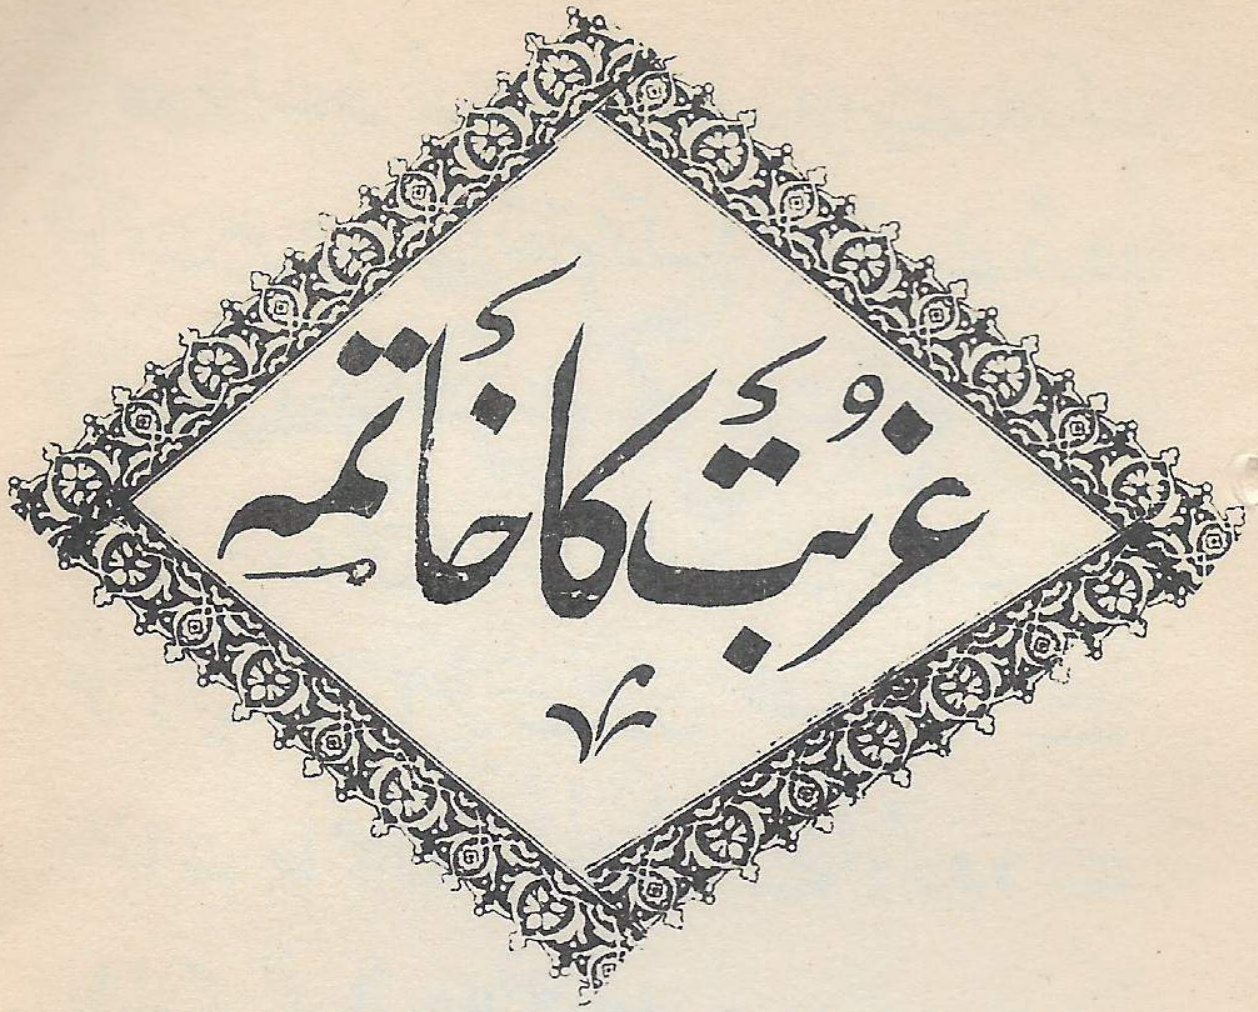 غربت کا خاتمہ